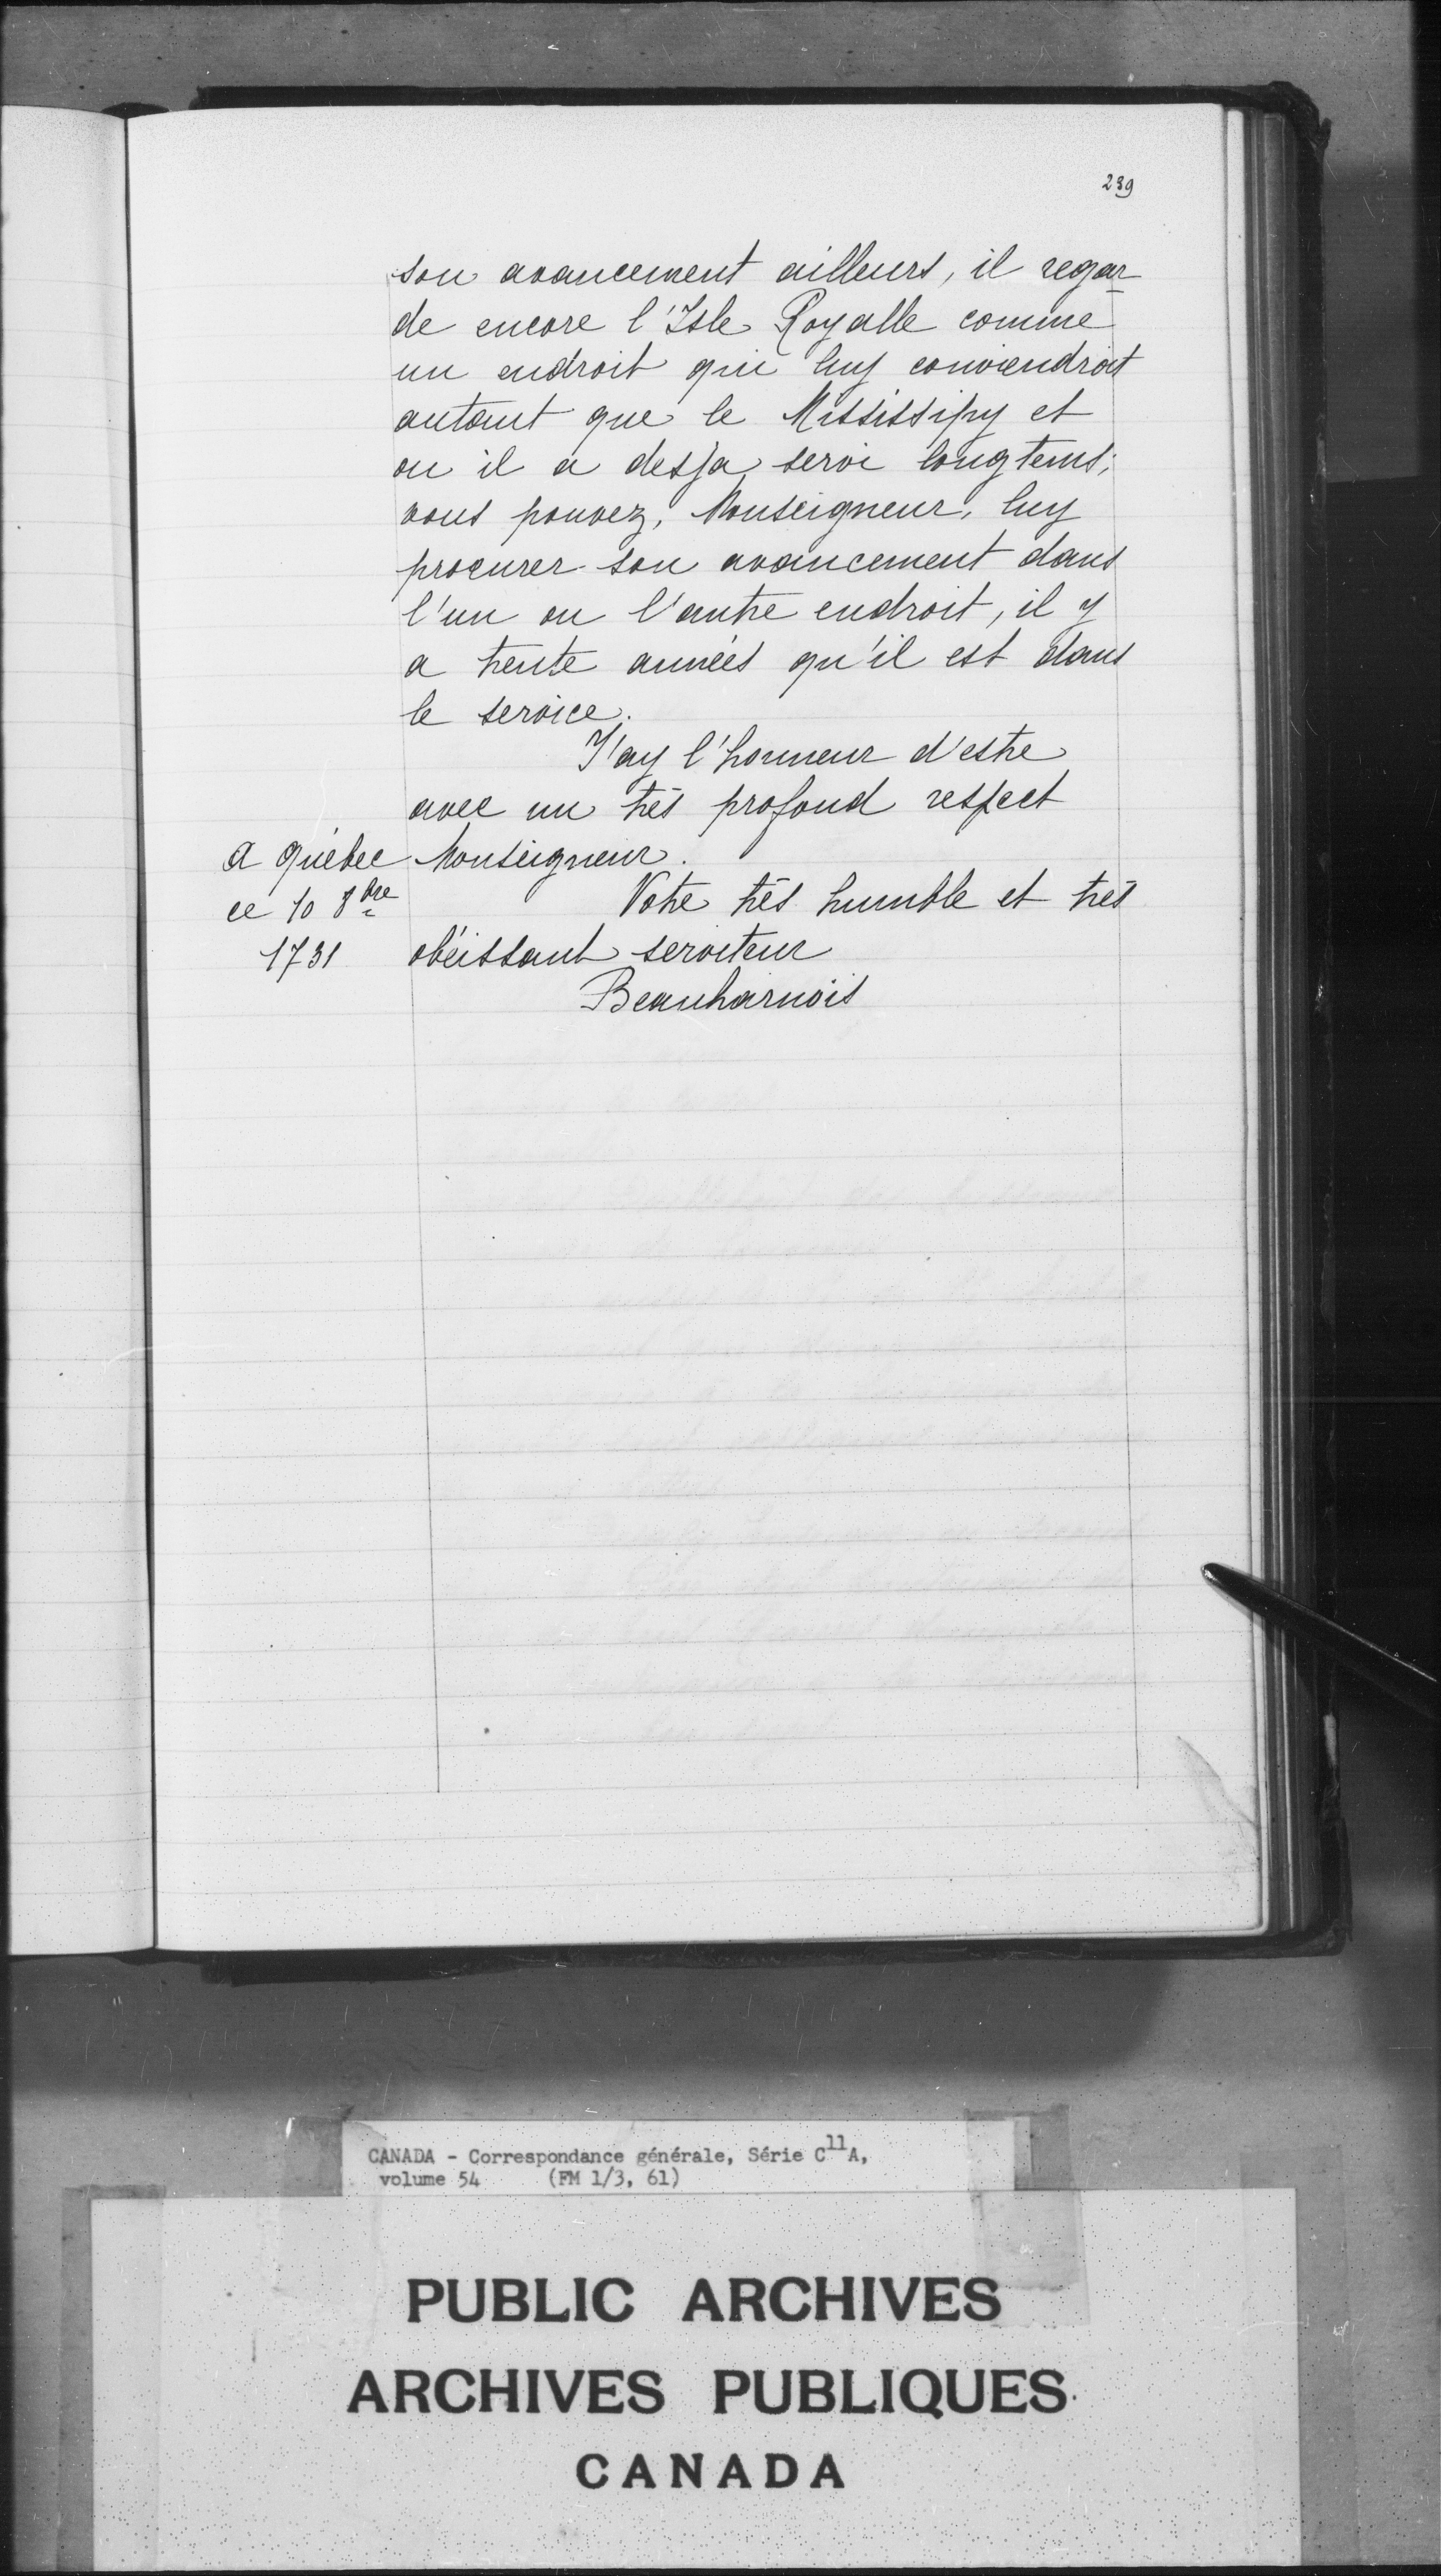 239
son avancement ailleurs, il regar
de encore l'Isle Royalle comme
un endroit qui luy conviendroit
autant que le Mississipy et
ou il a desja servi longtems;
vous pouvez, Monseigneur, luy
procurer son avancement dans
l'un ou l'autre endroit, il y
a trente années qu'il est dans
le service.
J'ay l'honneur d'estre
avec un très profond respect
a Québec Monseigneur.
ce 10 8bre Votre très humble et très
1731 obéissant serviteur
Beauharnois
CANADA - Correspondance générale, Série C11A,
volume 54 (FM 1/3, 61)
PUBLIC ARCHIVES
ARCHIVES PUBLIQUES
CANADA